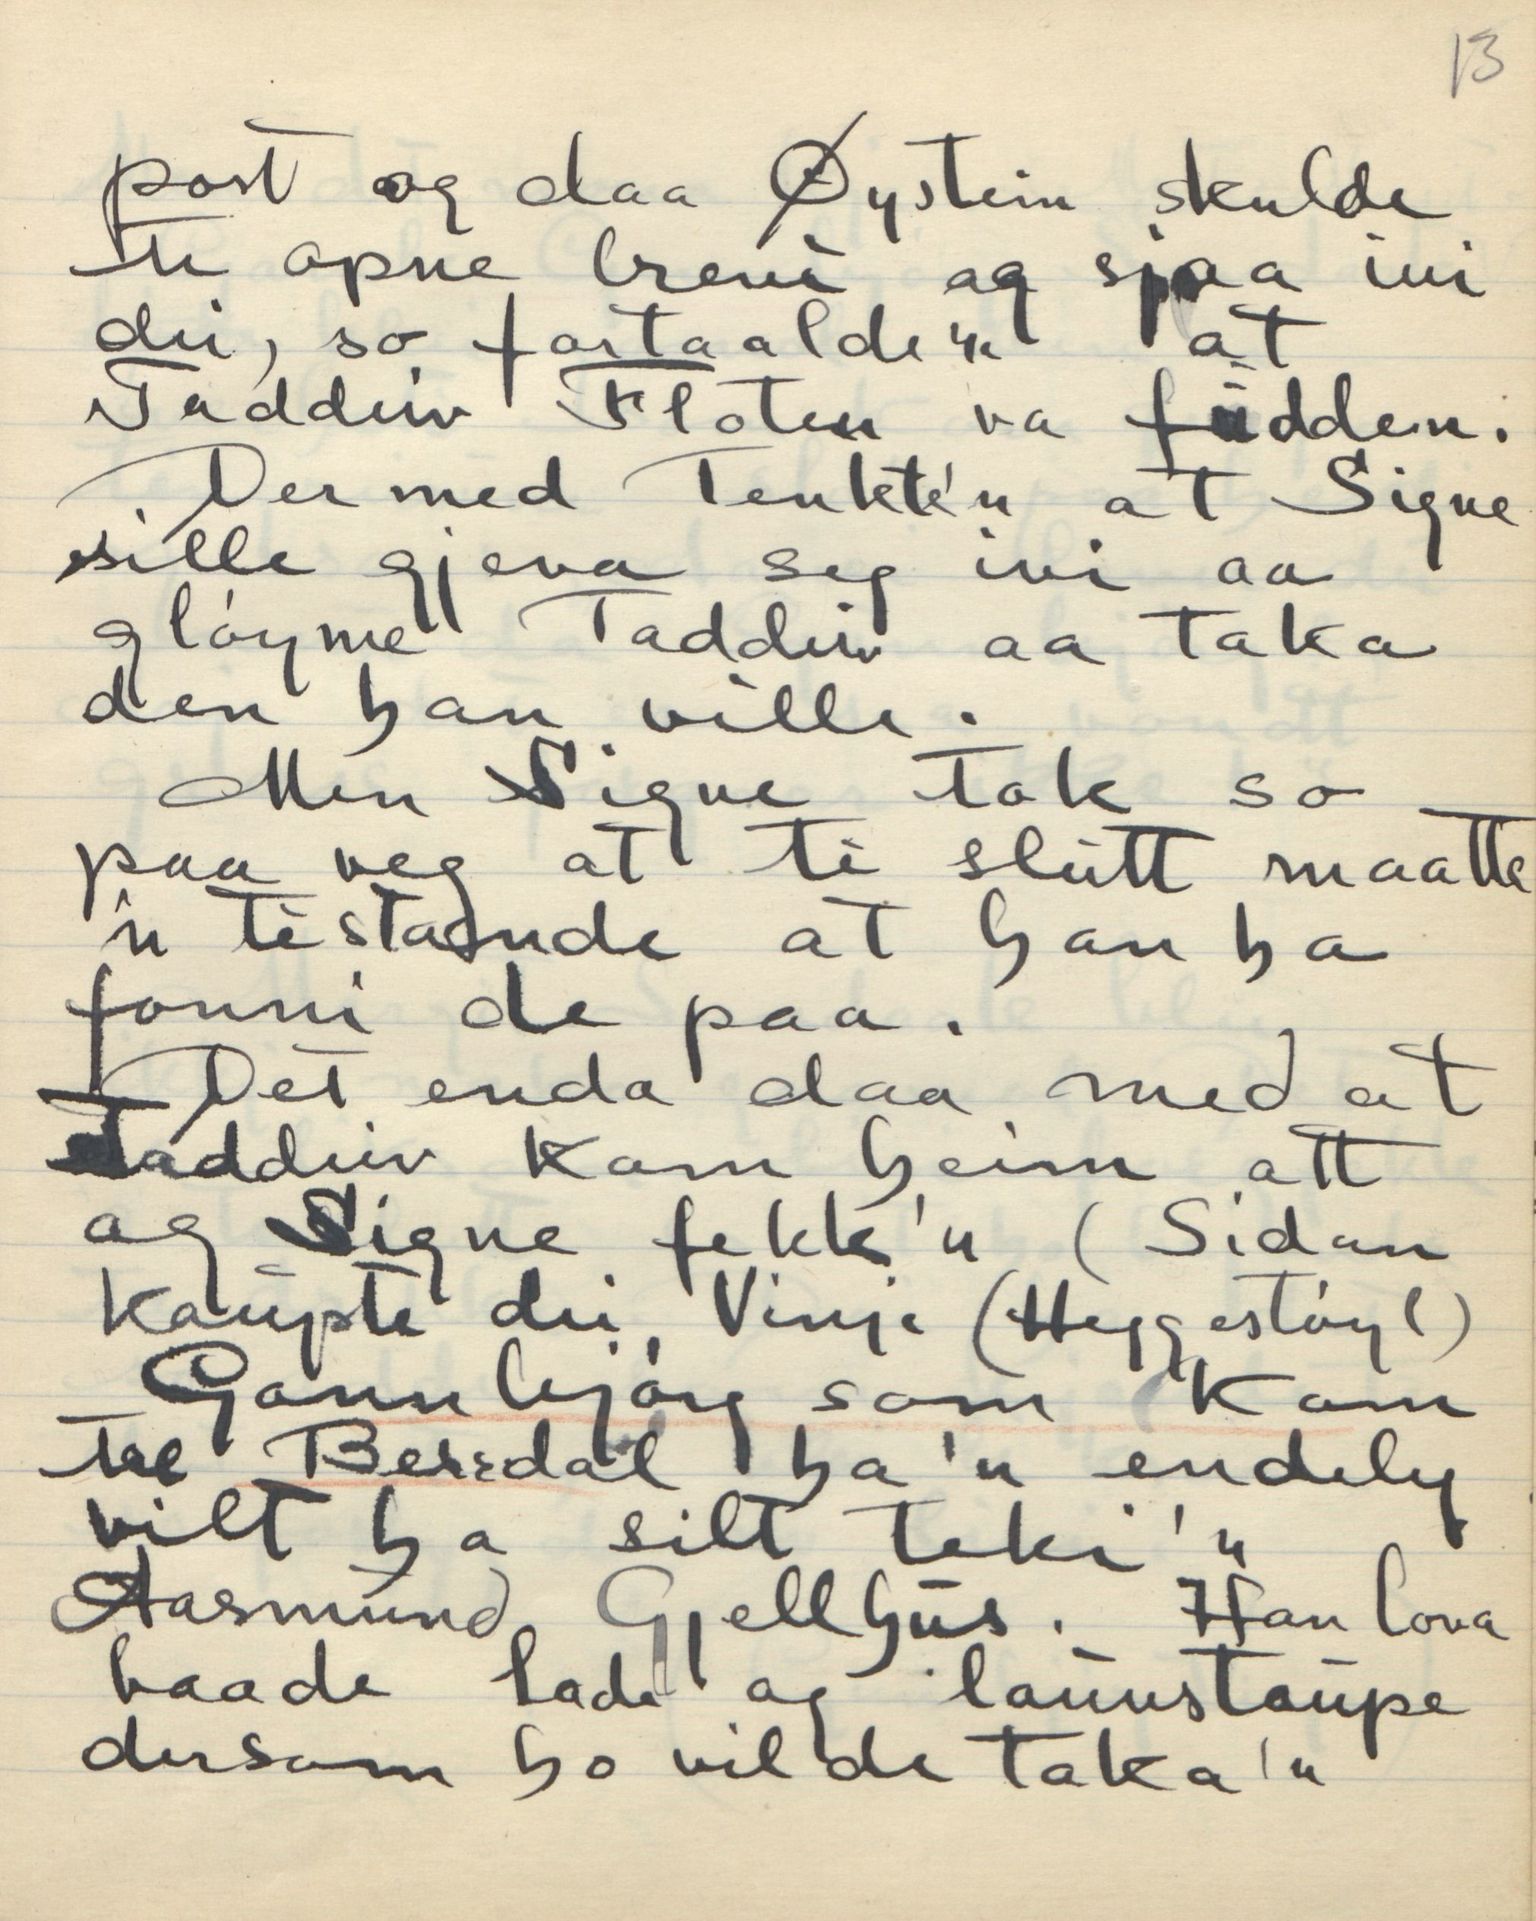 13
post og daa Øystein skulde
te opne brevi og sjaa ivi
dei, so fortaalde'n at
Taddeiv Floten va fűdden.
Dermed Tenkte'n at Signe
sille gjeva seg ivi aa
gløyme Taddeiv aa taka
den han ville.
Men Signe tok so
paa veg at te slútt maatte
'n testaande at han ha
fonni de paa.
Det enda daa med at
Taddeiv kom heim att
og Signe fekk'n (Sidan
kaúpte dei Vinje (Heggestøyl)
Gonnbjørg som kom
te Berrdal ha'n endeleg
vilt ha silt teki'n
Aasmúnd Gjellhús. Han lova
baade lade og laúnstaúpe
dersom ho vilde taka'n